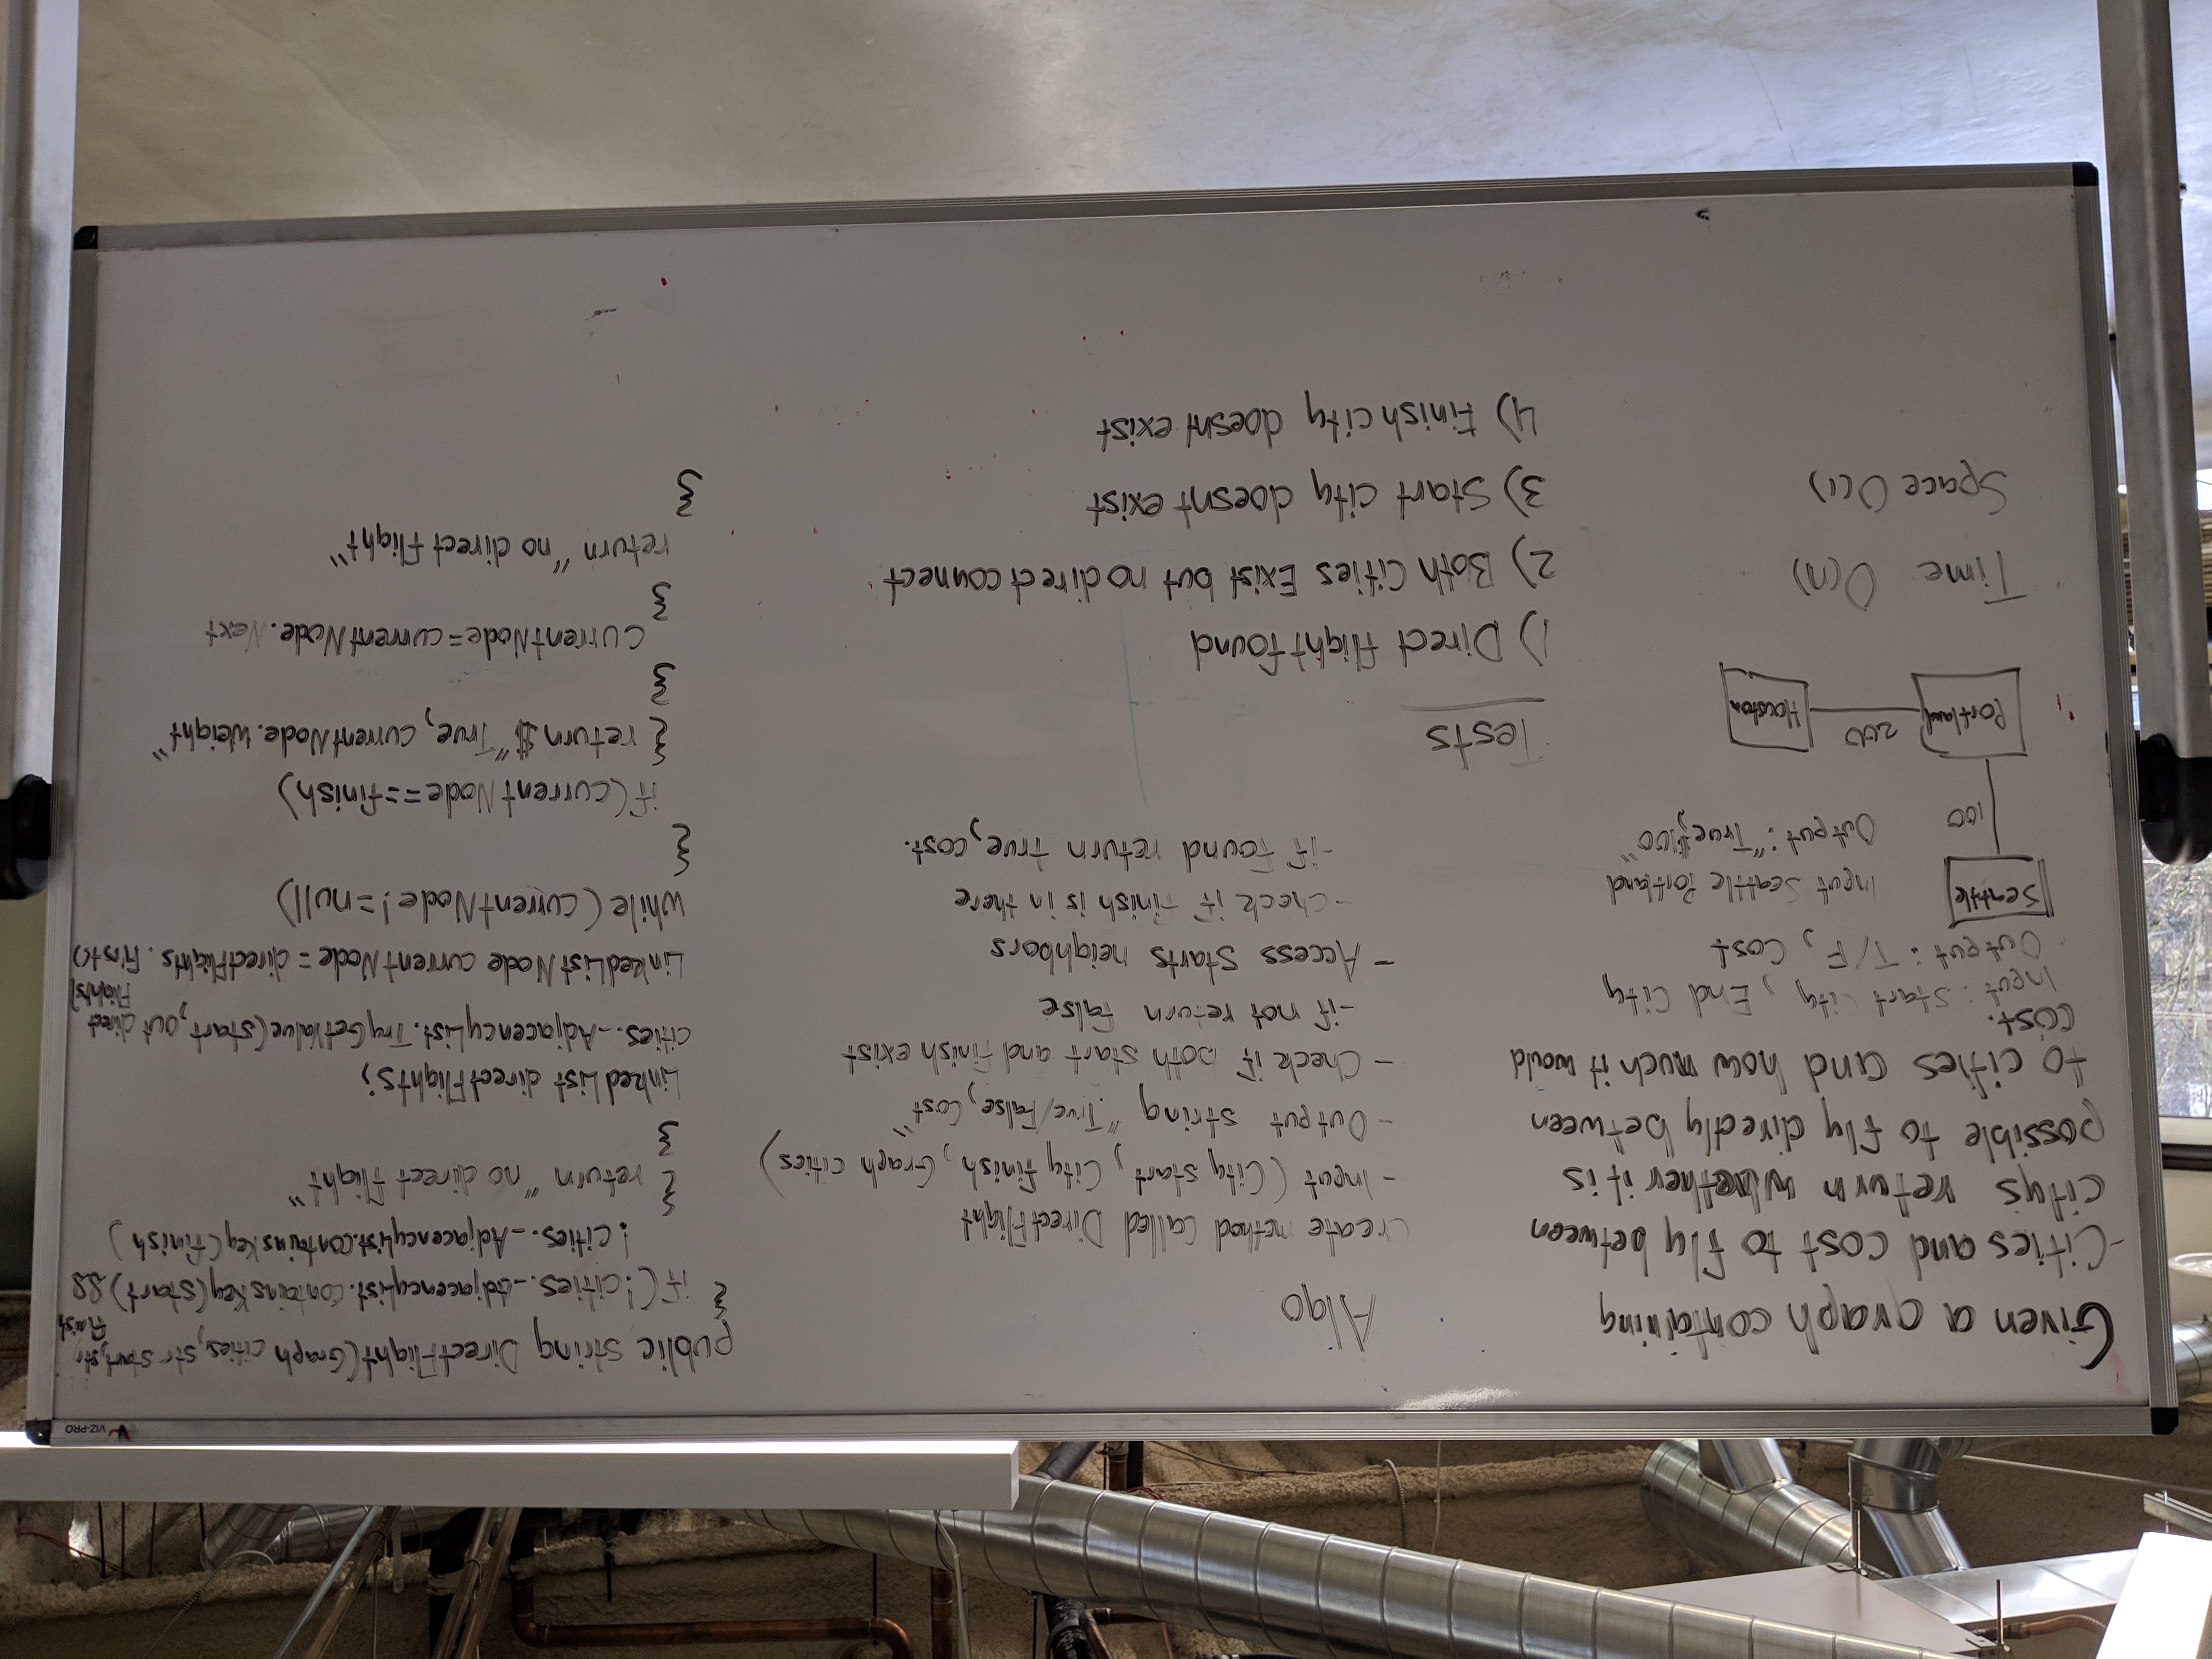 VIZ-PRO
Given a graph containing
-Cities and cost to fly between
city's return whether it is
possible to fly directly between
to cities and how much it would
cost.
Input: Start City, End City
Output: T/F, Cost
Seattle
100
Portland
200
Houston
Input Seattle Portland
Output: "True, $100"
Time O(n)
Space O(1)
Algo
Create method Called DirectFlight
- Input (City start, City finish, Graph cities)
- Output string "True/False, Cost"
- Check if both start and finish exist
-if not return false
- Access starts neighbors
-Check if finish is in there
-if found return true, cost.
Tests
1) Direct flight found
2) Both Cities Exist but no direct connect
3) Start city doesnt exist
4) Finish city doesnt exist
public string DirectFlight(Graph cities, str start, str
finish
{ if(!cities._AdjacencyList.containsKey(start) &&
!cities._AdjacencyList.containsKey(finish)
{ return "no direct flight"
}
LinkedList directFlights;
cities._AdjacencyList.TryGetValue(start, out direct
Flights)
LinkedListNode currentNode = directFlights.First()
while (currentNode!=null)
{
if(currentNode==finish)
{ return $"True, currentNode.Weight"
}
currentNode=currentNode.Next
}
return "no direct flight"
}